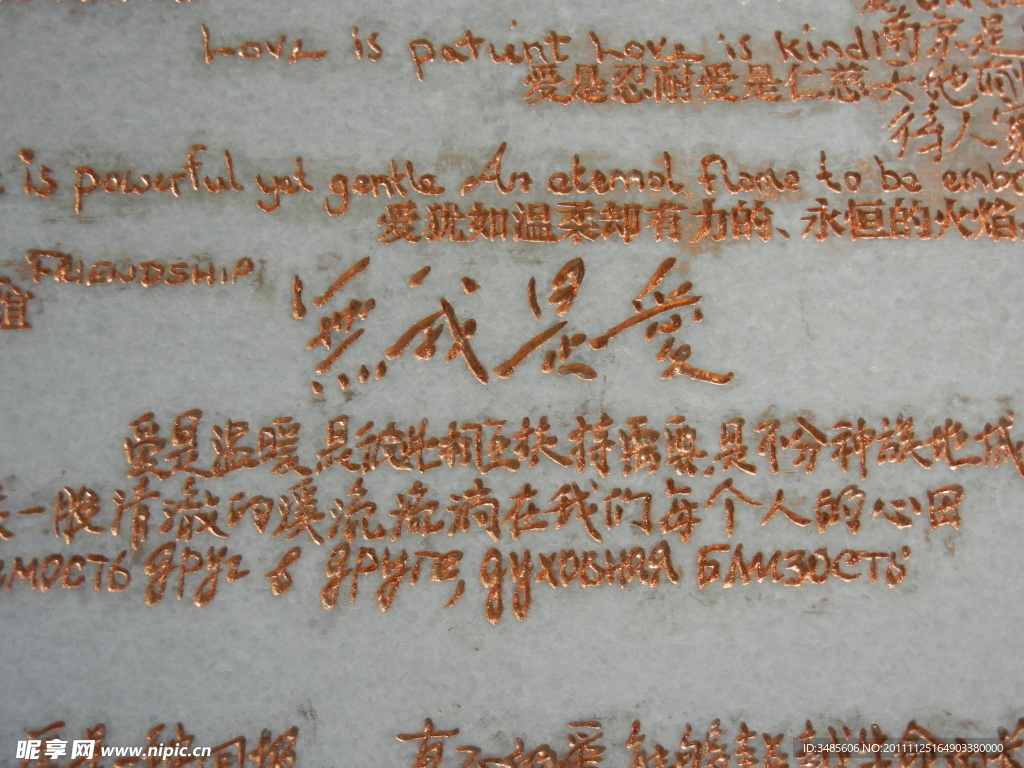 Love is patient Love is kind! 南京是
爱是忍耐爱是仁慈大地
待人
is powerful yet gentle An eternal flame to be embr
爱犹如温柔却有力的、永恒的火焰
FRIENDSHIP
谊
無我是爱
爱是温暖,是彼此相互扶持需要,是不分种族地域
一股清澈的溪流流淌在我们每个人的心田
имость друг в друге, духовная близость
真 的爱能够超越生命
昵享网 www.nipic.cn
ID:3485606 NO:20111125164903380000